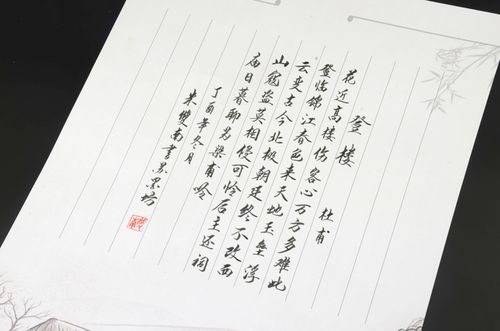 登楼 杜甫
花近高楼伤客心万方多难此
登临锦江春色来天地玉垒浮
云变古今北极朝廷终不改西
山寇盗莫相侵可怜后主还祠
庙日暮聊为梁甫吟
丁酉年冬月
朱雙南書墨坊